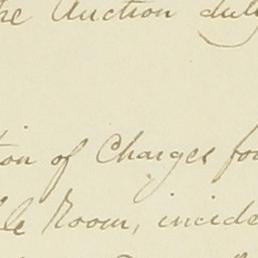 he Auction duty
ion of Charges for
le Room, incide